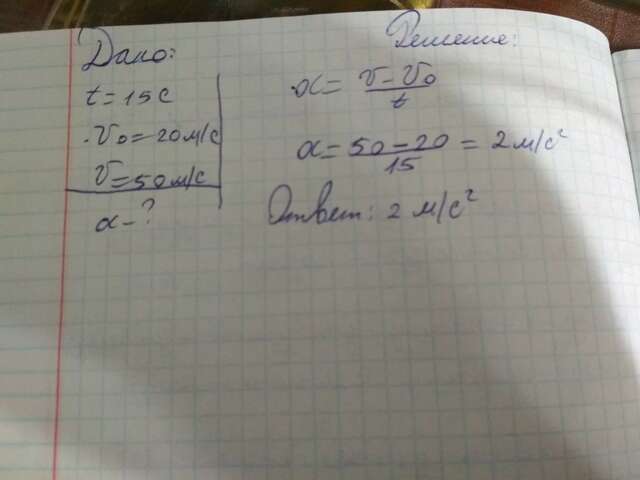 Дано:
t = 15 с
v₀ = 20 м/с
v = 50 м/с
a - ?
Решение:
a = (v - v₀)/t
a = (50 - 20)/15 = 2 м/с²
Ответ: 2 м/с²